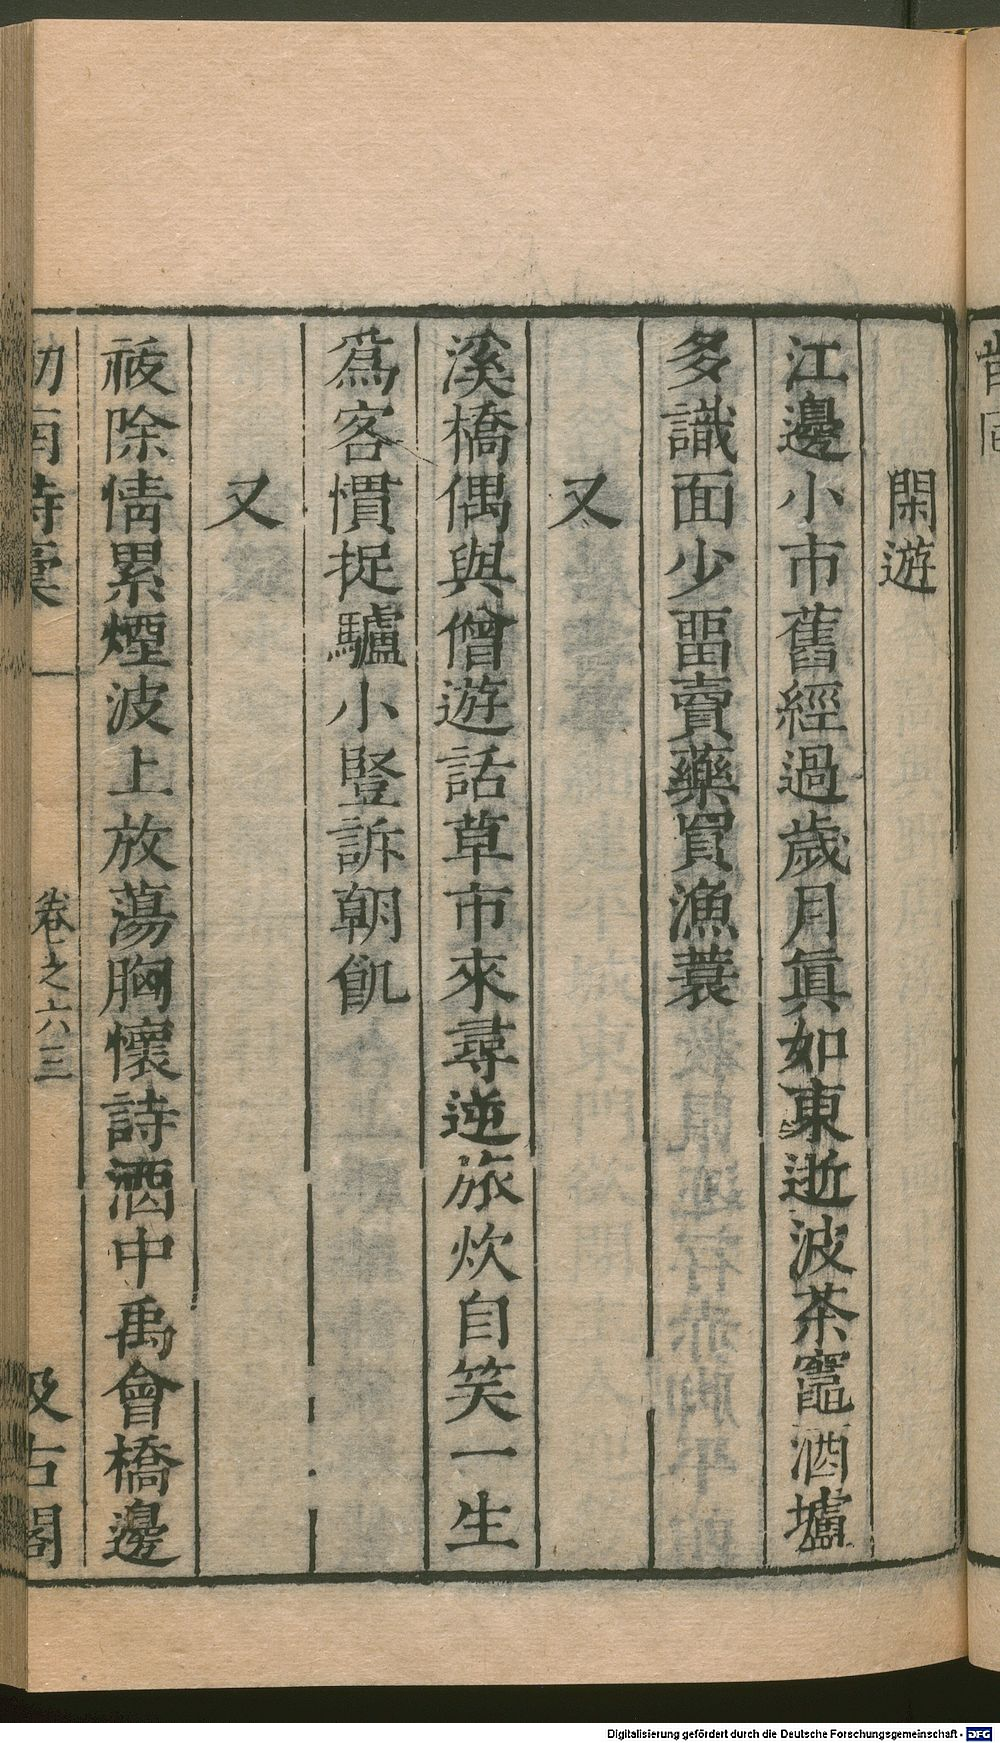 閑遊
江邊小市舊經過歲月眞如東逝波茶竈酒壚
多識面少畱賣藥買漁蓑
又
溪橋偶與僧遊話草市來尋逆旅炊自笑一生
爲客慣捉驢小豎訴朝飢
又
祓除情累煙波上放蕩胸懷詩酒中禹會橋邊
劒南詩稾
卷之六八三
汲古閣
Digitalisierung gefördert durch die Deutsche Forschungsgemeinschaft - DFG